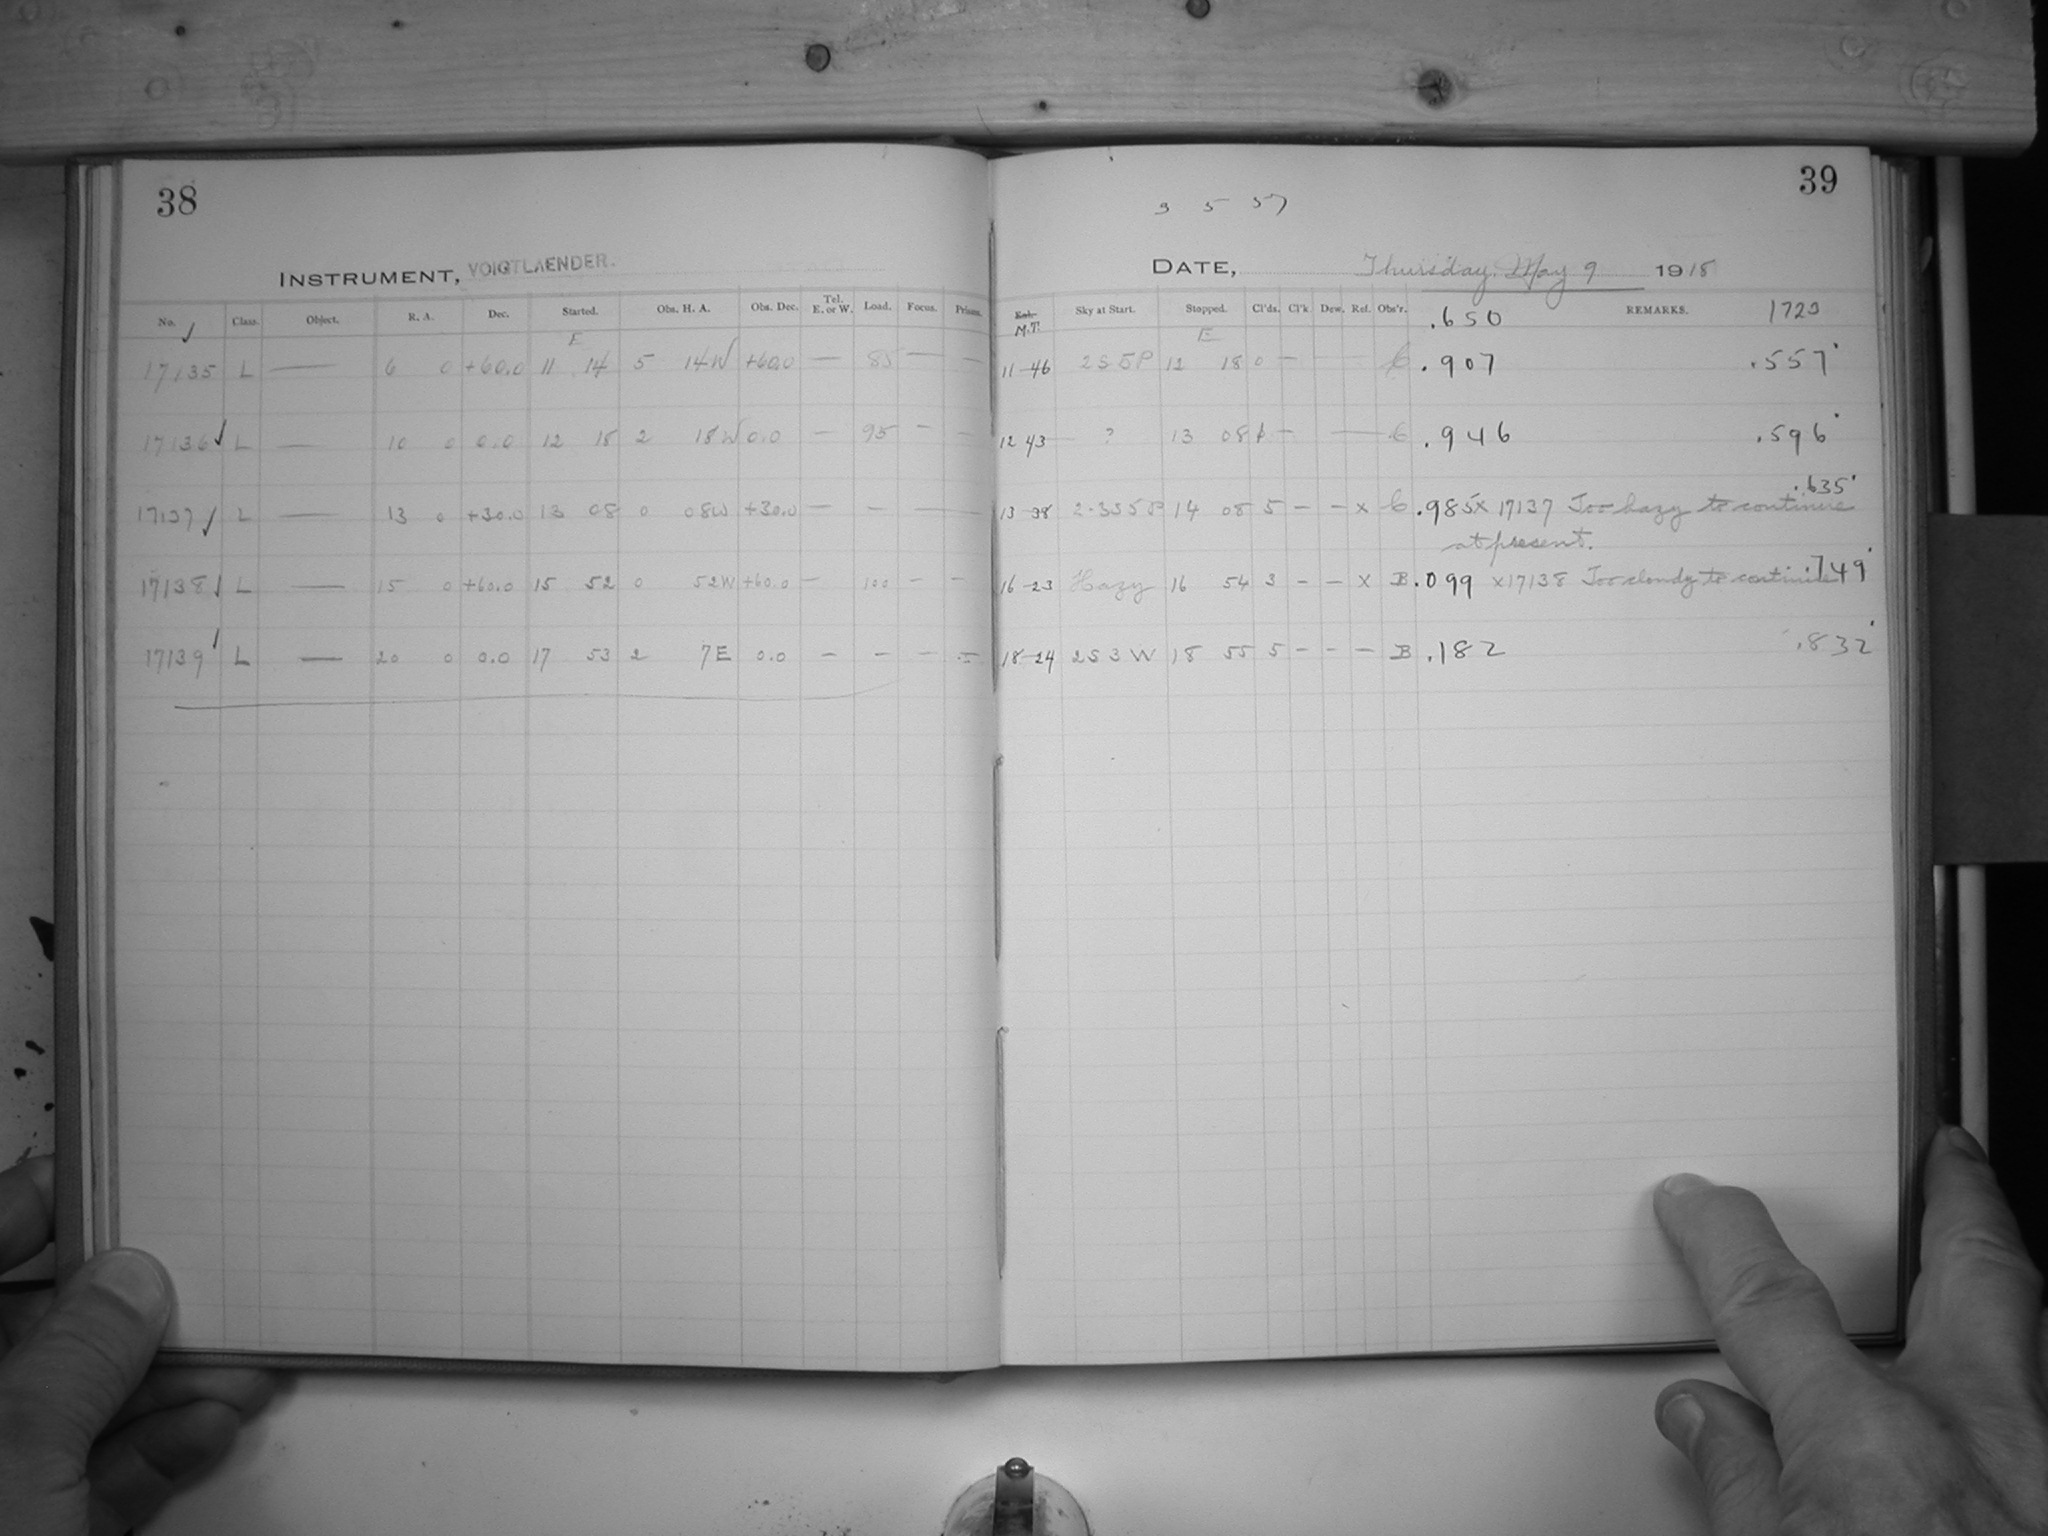 38
INSTRUMENT, VOIGTLAENDER.
No. Class. Object. R. A. Dec. Started. Obs. H. A. Obs. Dec. Tel. E. or W. Load. Focus. Prisms.
E
17135 L — 6 0 +60.0 11 14 5 14W +60.0 — 85 — —
17136 L — 10 0 0.0 12 18 2 18W 0.0 — 95 — —
17137 L — 13 0 +30.0 13 08 0 08W +30.0 — — — —
17138 L — 15 0 +60.0 15 52 0 52W +60.0 — 100 — —
17139 L — 20 0 0.0 17 53 2 7E 0.0 — — — —
39
3 5 57
DATE, Thursday, May 9 1918
Exp. M.T. Sky at Start. Stopped. Cl'ds. Cl'k. Dew. Ref. Obs'r. REMARKS.
.650 1723
E
11-46 2S5P 12 18 0 — — — C .907 .557
12 43 ? 13 08 — — C .946 .596
.635
13-38 2-3S5P 14 08 5 — — x C .985 x 17137 Too hazy to continue
at present.
16-23 Hazy 16 54 3 — — x B .099 x17138 Too cloudy to continue .749
18-24 2S3W 18 55 5 — — — B .182 .832